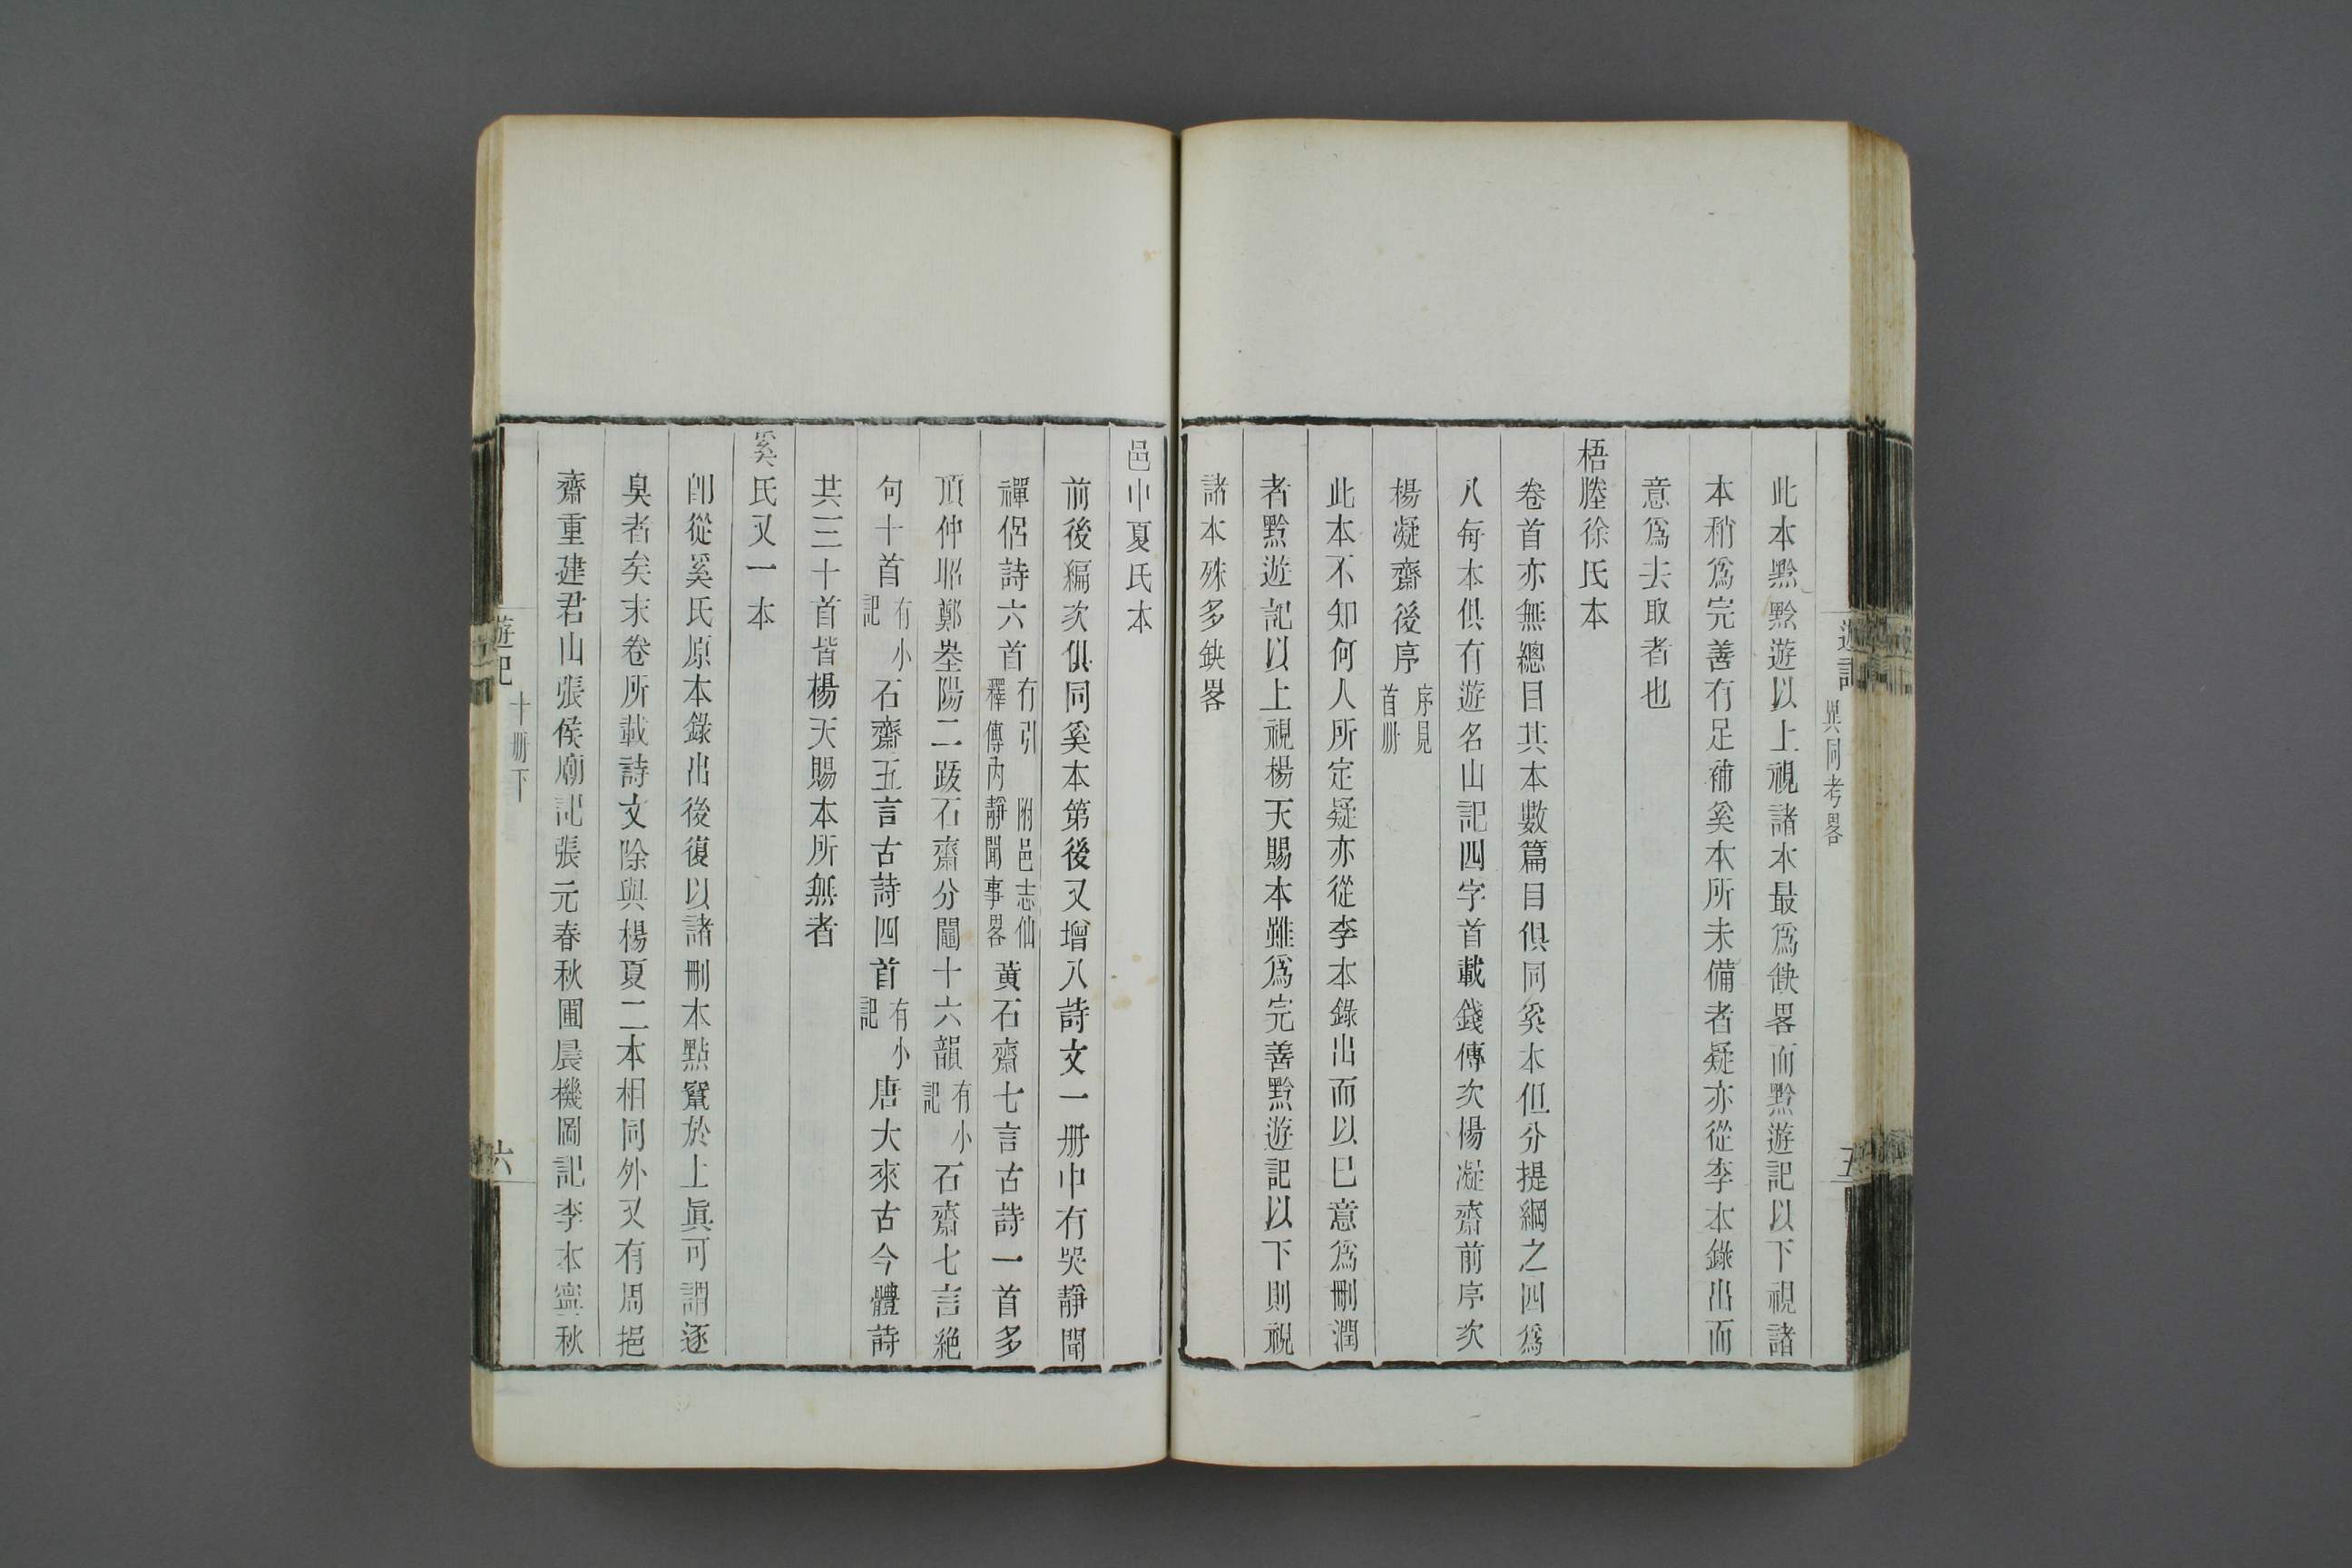 遊記 異同考畧 五
此本黔黔遊以上視諸本最爲缺畧而黔遊記以下視諸
本稍爲完善有足補奚本所未備者疑亦從李本錄出而
意爲去取者也
梧塍徐氏本
卷首亦無總目其本數篇目俱同奚本但分提綱之四爲
八每本俱有遊名山記四字首載錢傳次楊凝齋前序次
楊凝齋後序序見首册
此本不知何人所定疑亦從李本錄出而以巳意爲刪潤
者黔遊記以上視楊天賜本雖爲完善黔遊記以下則視
諸本殊多缺畧
邑中夏氏本
前後編次俱同奚本第後又增八詩文一册中有哭靜聞
禪侶詩六首有引附邑志仙釋傳內靜聞事畧黃石齋七言古詩一首多
頂仲昭鄭峚陽二跋石齋分闔十六韻有小記石齋七言絶
句十首有小記石齋五言古詩四首有小記唐大來古今體詩
共三十首皆楊天賜本所無者
奚氏又一本
卽從奚氏原本錄出後復以諸刪本點竄於上眞可謂逐
臭者矣末卷所載詩文除與楊夏二本相同外又有周挹
齋重建君山張侯廟記張元春秋圃晨機圖記李本寧秋
遊記 十册下 六